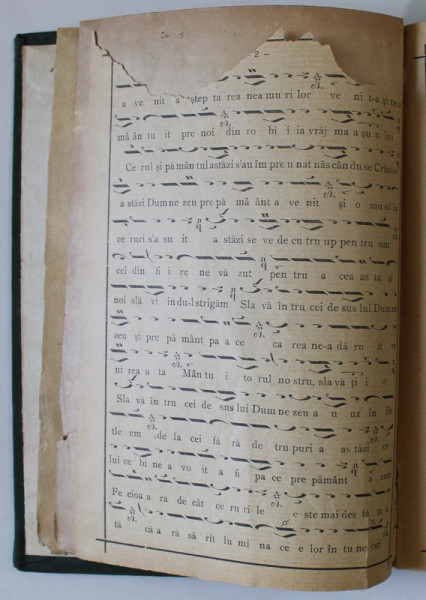 - 2 -
a ve nit a ștep ta rea nea mu ri lor ve ni t-a și ne a
mă ân tu it pre noi din ro bi i ia vrăj ma a șu u lui
Ce rul și pă mân tul astăzi s'au îm pre u nat năs cân du se Cristos
a stăzi Dum ne zeu pre pă mâ ânt a ve nit și o mu ul la
ce ruri s'a su it a stăzi se ve de cu tru up pen tru om
cel din fi i re ne vă zut pen tru a cea as ta și
noi slă vi in du-l strigăm Sla vă în tru cei de sus lui Dum ne
zeu și pre pă mânt pa a ce ca rea ne-a dă ru it ve
ni rea a ta Mân tu i to rul no stru, sla vă ți i e
Sla vă în tru cei de sus lui Dum ne zeu a u uz in Be
tle em de la cei fă ră de tru puri a as tăzi ce
lui ce bi ne a vo it a fi pa ce pre pământ a cum
Fe cioa a ra de cât ce ru ri le e ste mai des fă ta a
tă că a ră să rit lu mi na ce e lor în tu ne cați